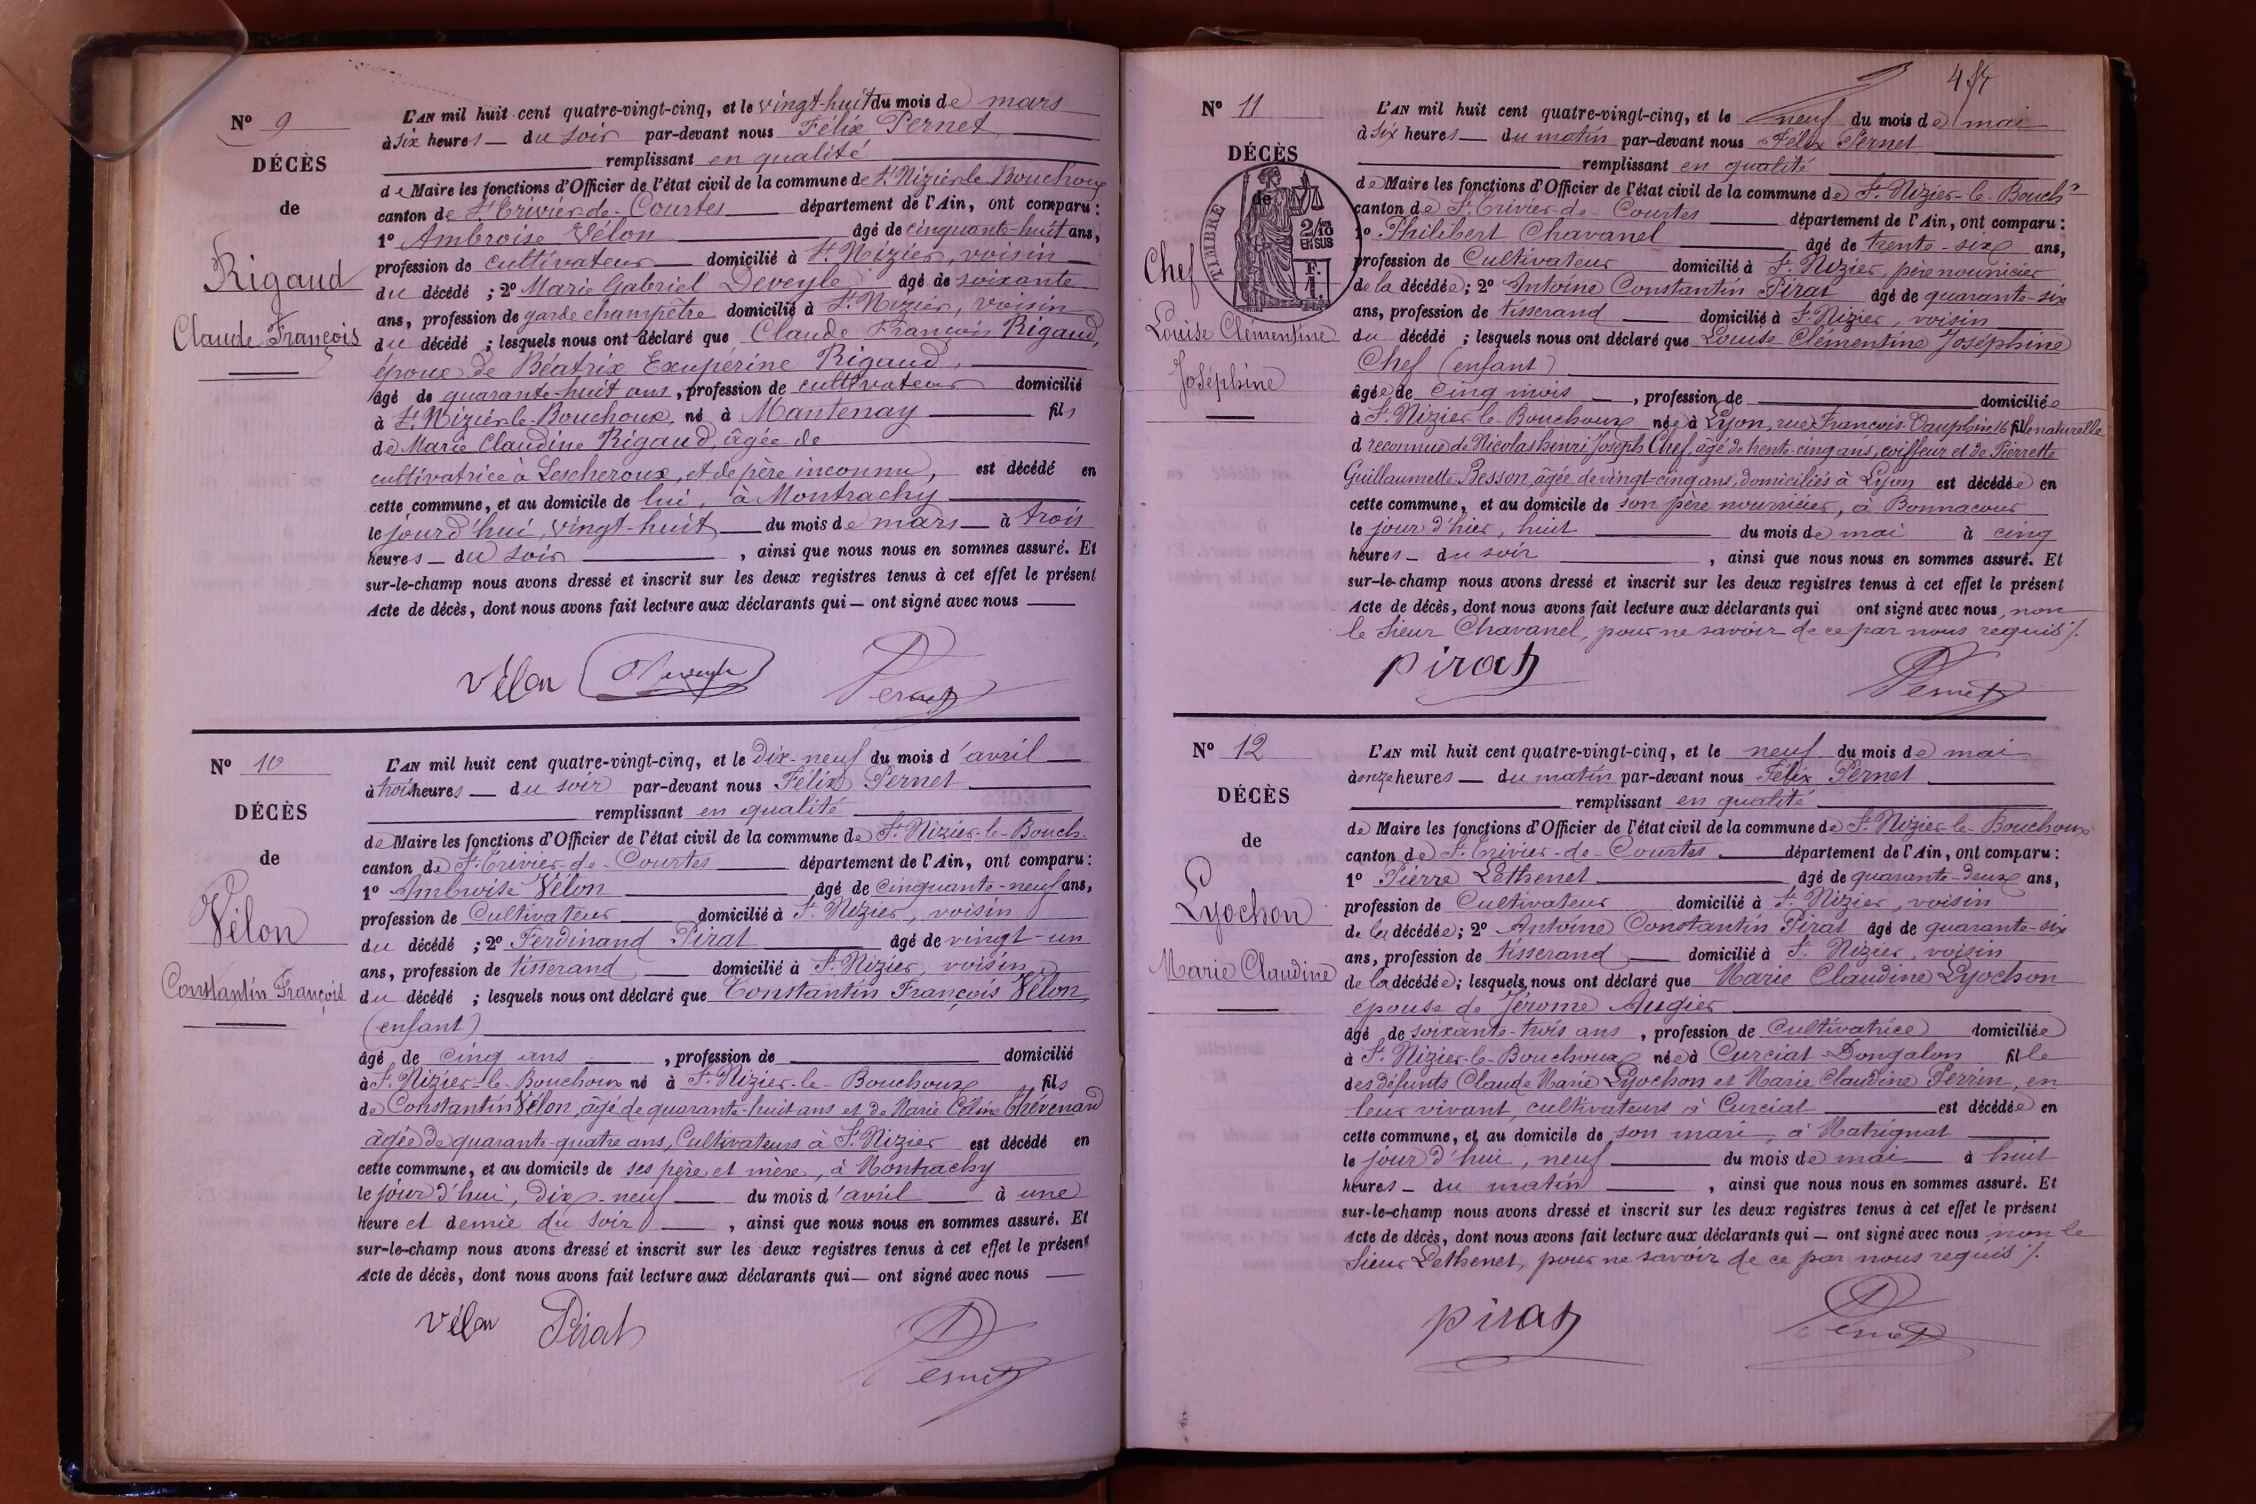 Nº 9
DÉCÈS
de
Rigaud
Claude François
L'AN mil huit cent quatre-vingt-cinq, et le vingt-huit du mois de mars
à six heures — du soir par-devant nous Félix Pernet
remplissant en qualité
de Maire les fonctions d'Officier de l'état civil de la commune de St Nizier-le-Bouchoux
canton de St Trivier-de-Courtes département de l'Ain, ont comparu :
1º Ambroise Vélon âgé de cinquante-huit ans,
profession de cultivateur domicilié à St Nizier, voisin
du décédé ; 2º Marie Gabriel Deveyle âgé de soixante
ans, profession de garde champêtre domicilié à St Nizier, voisin
du décédé ; lesquels nous ont déclaré que Claude François Rigaud,
époux de Béatrix Exupérine Rigaud,
âgé de quarante-huit ans, profession de cultivateur domicilié
à St Nizier-le-Bouchoux, né à Mantenay fils
de Marie Claudine Rigaud, âgée de
cultivatrice à Lescheroux, et de père inconnu, est décédé en
cette commune, et au domicile de lui, à Montrachy
le jourd'hui, vingt-huit du mois de mars à trois
heures du soir , ainsi que nous nous en sommes assuré. Et
sur-le-champ nous avons dressé et inscrit sur les deux registres tenus à cet effet le présent
Acte de décès, dont nous avons fait lecture aux déclarants qui — ont signé avec nous
Vélon Deveyle Pernet
Nº 10
DÉCÈS
de
Vélon
Constantin François
L'AN mil huit cent quatre-vingt-cinq, et le dix-neuf du mois d'avril
à trois heures — du soir par-devant nous Félix Pernet
remplissant en qualité
de Maire les fonctions d'Officier de l'état civil de la commune de St Nizier-le-Bouch.
canton de St Trivier-de-Courtes département de l'Ain, ont comparu :
1º Ambroise Vélon âgé de cinquante-neuf ans,
profession de Cultivateur domicilié à St Nizier, voisin
du décédé ; 2º Ferdinand Pirat âgé de vingt-un
ans, profession de tisserand domicilié à St Nizier, voisin
du décédé ; lesquels nous ont déclaré que Constantin François Vélon,
(enfant)
âgé de cinq ans , profession de domicilié
à St Nizier-le-Bouchoux né à St Nizier-le-Bouchoux fils
de Constantin Vélon, âgé de quarante-huit ans et de Marie Céline Thévenard
âgée de quarante-quatre ans, Cultivateurs à St Nizier est décédé en
cette commune, et au domicile de ses père et mère, à Montrachy
le jourd'hui, dix-neuf du mois d'avril à une
heure et demie du soir , ainsi que nous nous en sommes assuré. Et
sur-le-champ nous avons dressé et inscrit sur les deux registres tenus à cet effet le présent
Acte de décès, dont nous avons fait lecture aux déclarants qui — ont signé avec nous
Vélon Pirat Pernet
Nº 11
DÉCÈS
de
Chef
Louise Clémentine
Joséphine
TIMBRE
2/10
EN SUS
F.
1.
L'AN mil huit cent quatre-vingt-cinq, et le neuf du mois de mai
à six heures — du matin par-devant nous Félix Pernet
remplissant en qualité
de Maire les fonctions d'Officier de l'état civil de la commune de St Nizier-le-Bouch.
canton de St Trivier-de-Courtes département de l'Ain, ont comparu :
1º Philibert Chavanel âgé de trente-six ans,
profession de Cultivateur domicilié à St Nizier, père nourricier
de la décédée ; 2º Antoine Constantin Pirat âgé de quarante-six
ans, profession de tisserand domicilié à St Nizier, voisin
du décédé ; lesquels nous ont déclaré que Louise Clémentine Joséphine
Chef (enfant)
âgée de cinq mois , profession de domiciliée
à St Nizier-le-Bouchoux née à Lyon, rue François-Dauphin 16 fille naturelle
d reconnue de Nicolas henri Joseph Chef, âgé de trente-cinq ans, coiffeur et de Pierrette
Guillaumette Besson, âgée de vingt-cinq ans, domiciliés à Lyon est décédée en
cette commune, et au domicile de son père nourricier, à Bonnacour
le jour d'hier, huit du mois de mai à cinq
heures — du soir , ainsi que nous nous en sommes assuré. Et
sur-le-champ nous avons dressé et inscrit sur les deux registres tenus à cet effet le présent
Acte de décès, dont nous avons fait lecture aux déclarants qui ont signé avec nous, non
le Sieur Chavanel, pour ne savoir de ce par nous requis ./.
pirat Pernet
Nº 12
DÉCÈS
de
Lyochon
Marie Claudine
L'AN mil huit cent quatre-vingt-cinq, et le neuf du mois de mai
à onze heures — du matin par-devant nous Félix Pernet
remplissant en qualité
de Maire les fonctions d'Officier de l'état civil de la commune de St Nizier-le-Bouchoux
canton de St Trivier-de-Courtes département de l'Ain, ont comparu :
1º Pierre Lethenet âgé de quarante-deux ans,
profession de Cultivateur domicilié à St Nizier, voisin
de la décédée ; 2º Antoine Constantin Pirat âgé de quarante-six
ans, profession de tisserand domicilié à St Nizier, voisin
de la décédée ; lesquels nous ont déclaré que Marie Claudine Lyochon
épouse de Jérome Augier
âgé de soixante-trois ans , profession de Cultivatrice domiciliée
à St Nizier-le-Bouchoux née à Curciat-Dongalon fille
des défunts Claude Marie Lyochon et Marie Claudine Perrin, en
leur vivant, cultivateurs à Curciat est décédée en
cette commune, et au domicile de son mari, à Matrignat
le jourd'hui, neuf du mois de mai à huit
heures — du matin , ainsi que nous nous en sommes assuré. Et
sur-le-champ nous avons dressé et inscrit sur les deux registres tenus à cet effet le présent
Acte de décès, dont nous avons fait lecture aux déclarants qui — ont signé avec nous, non le
Sieur Lethenet, pour ne savoir de ce par nous requis ./.
pirat Pernet